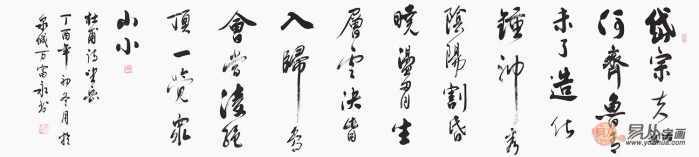 岱宗夫
何齊魯青
未了造化
鍾神秀
陰陽割昏
曉盪胷生
層雲決眥
入歸鳥
會當淩絕
頂一覽眾
山小
杜甫詩望嶽
丁酉年初冬月於
泉城
易从字画